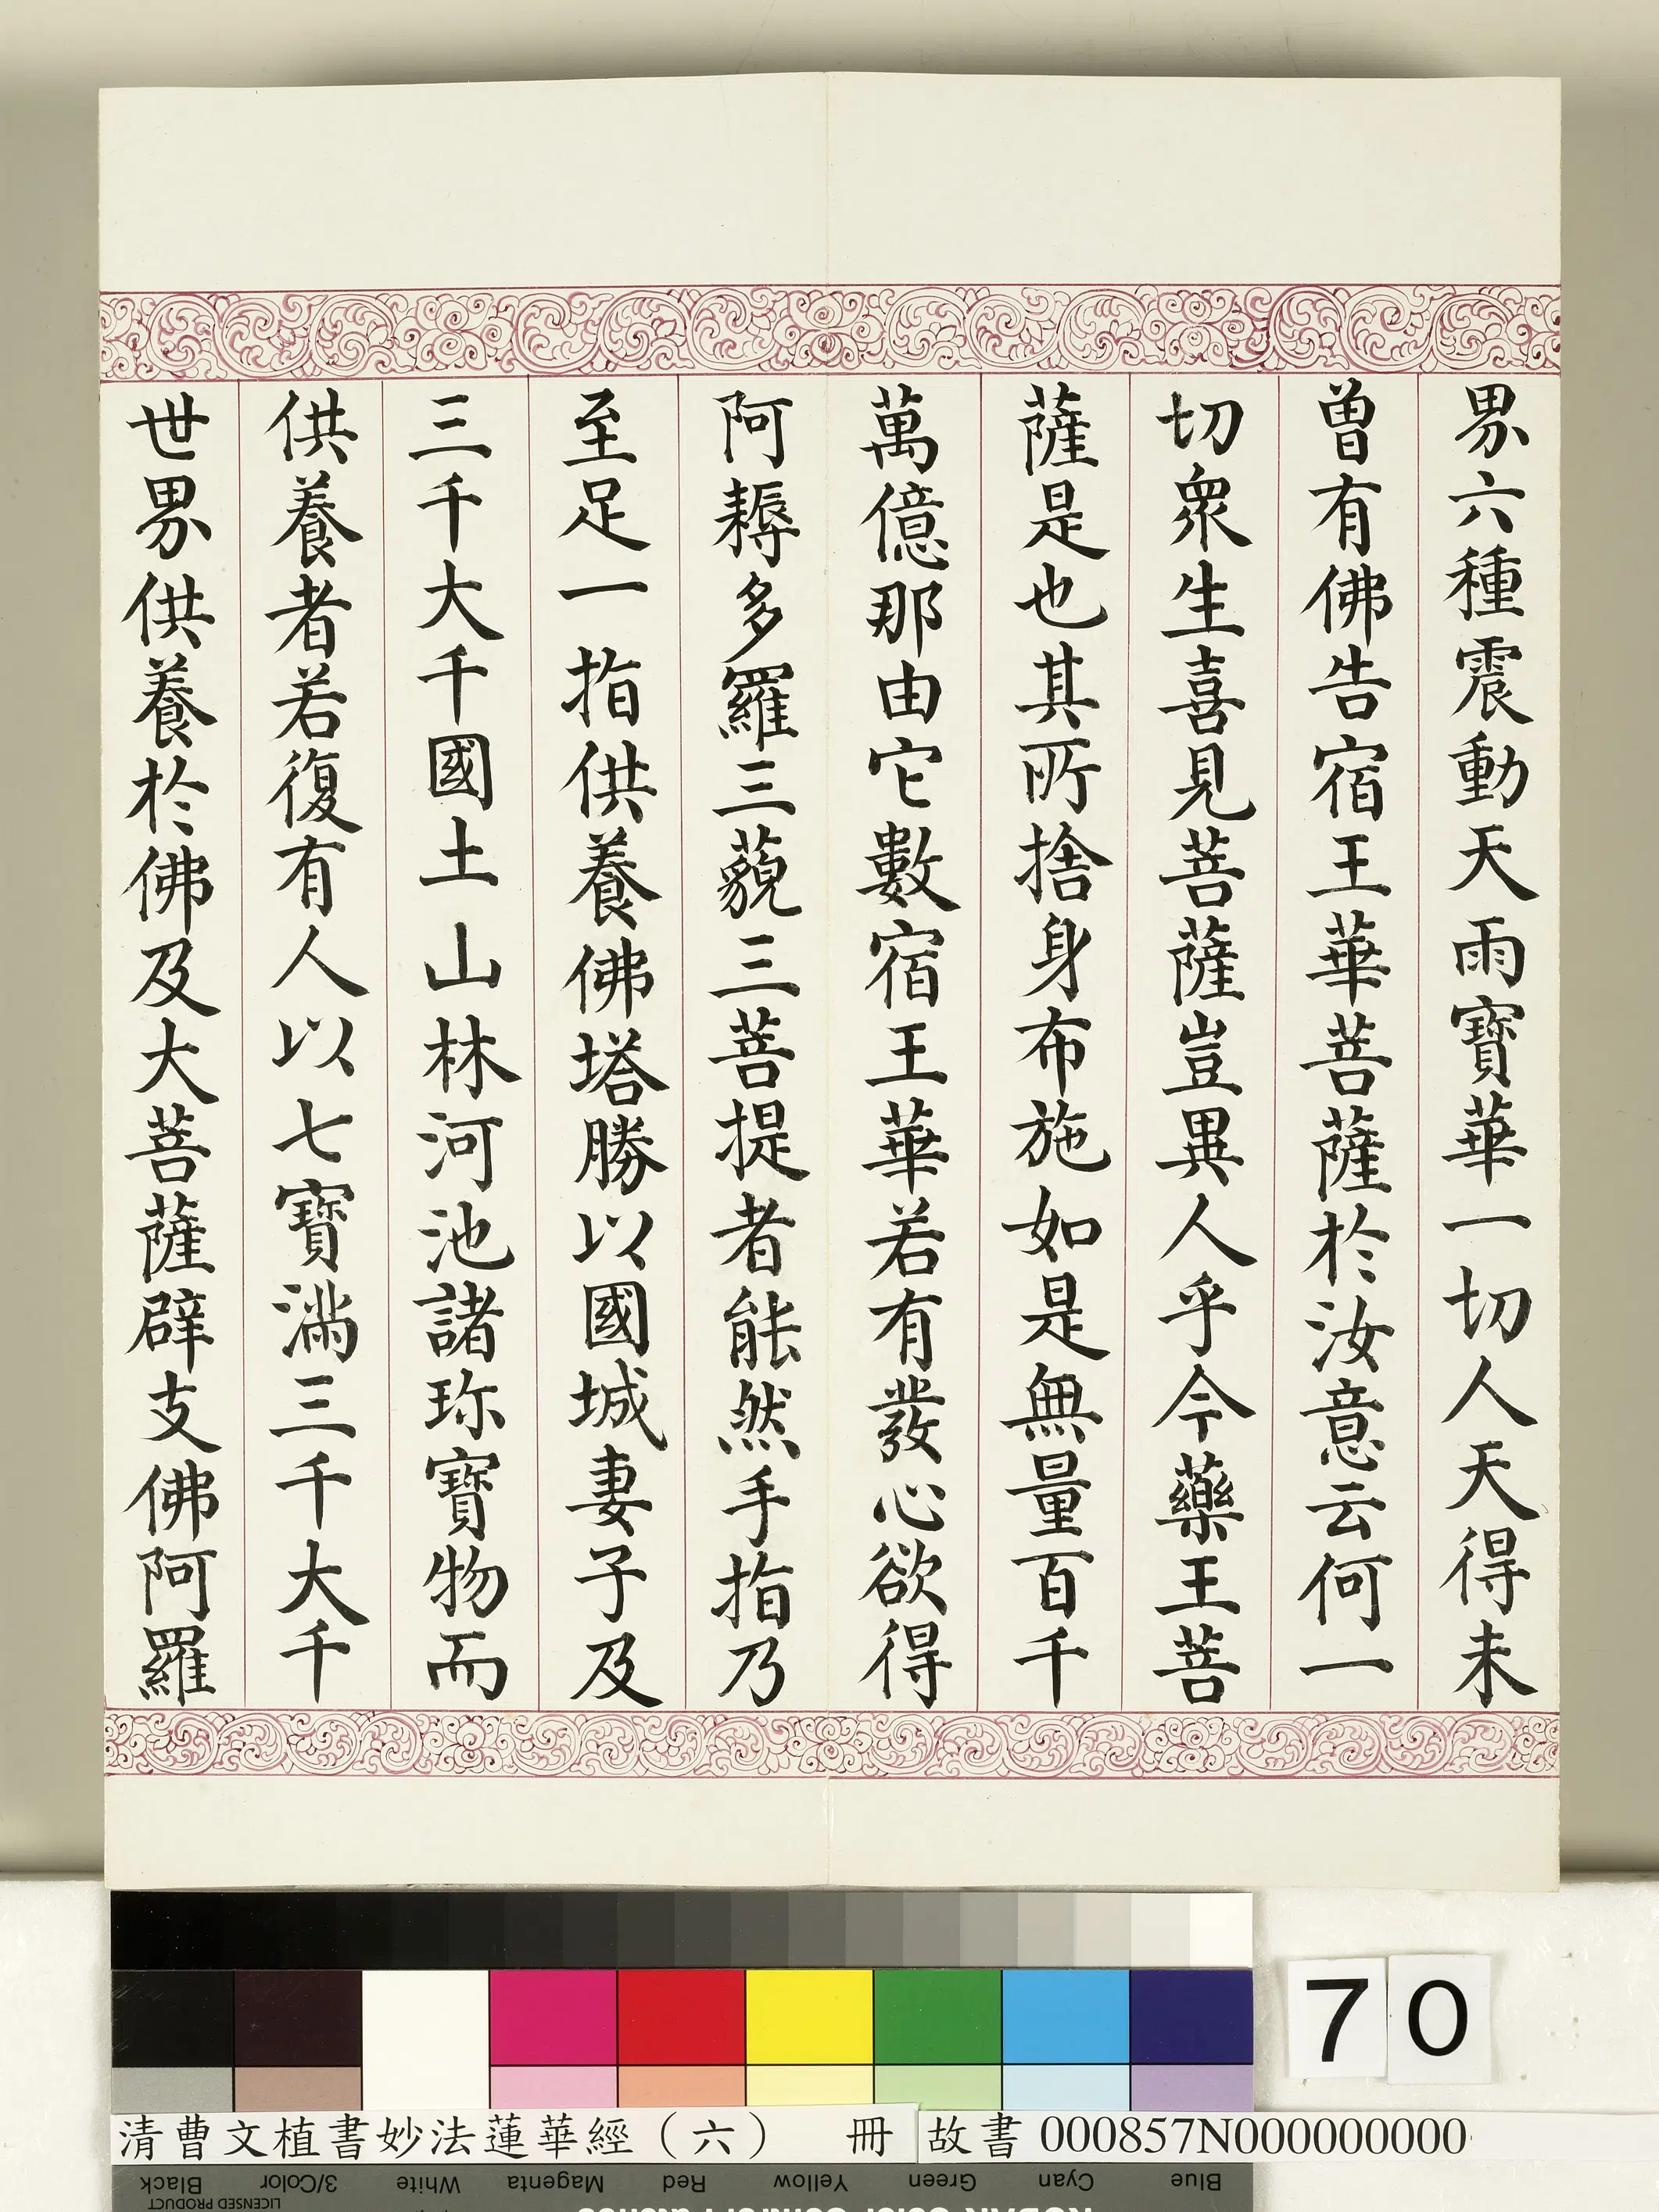 界六種震動天雨寶華一切人天得未
曾有佛告宿王華菩薩於汝意云何一
切衆生喜見菩薩豈異人乎今藥王菩
薩是也其所捨身布施如是無量百千
萬億那由它數宿王華若有發心欲得
阿耨多羅三藐三菩提者能然手指乃
至足一指供養佛塔勝以國城妻子及
三千大千國土山林河池諸珎寶物而
供養者若復有人以七寶滿三千大千
世界供養於佛及大菩薩辟支佛阿羅
70
清曹文植書妙法蓮華經（六） 冊
故書 000857N000000000
Blue Cyan Green Yellow Red Magenta White 3/Color Black
LICENSED PRODUCT